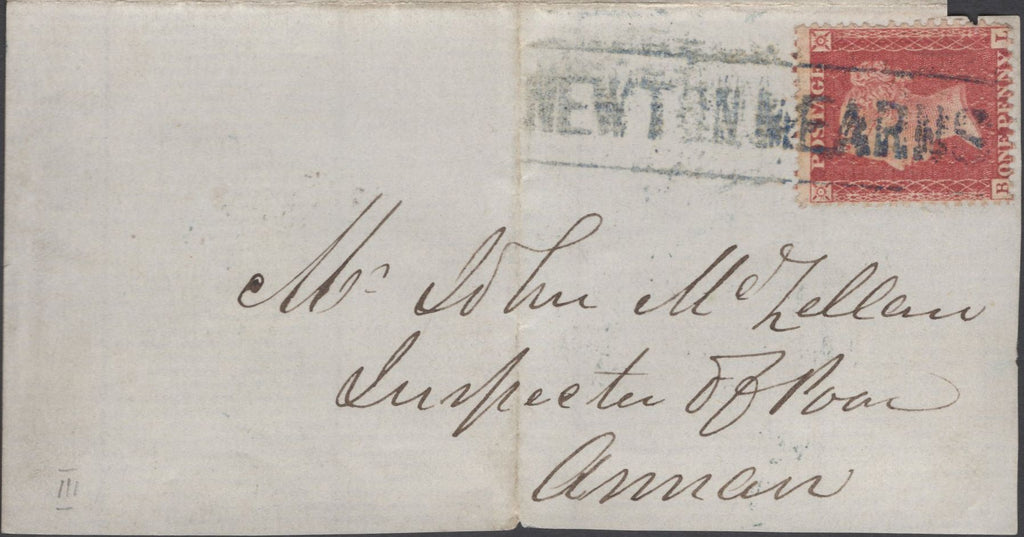 POSTAGE
ONE PENNY
B L
NEWTON MEARNS
Mr John McLellan
Inspector of Poor
Annan
III